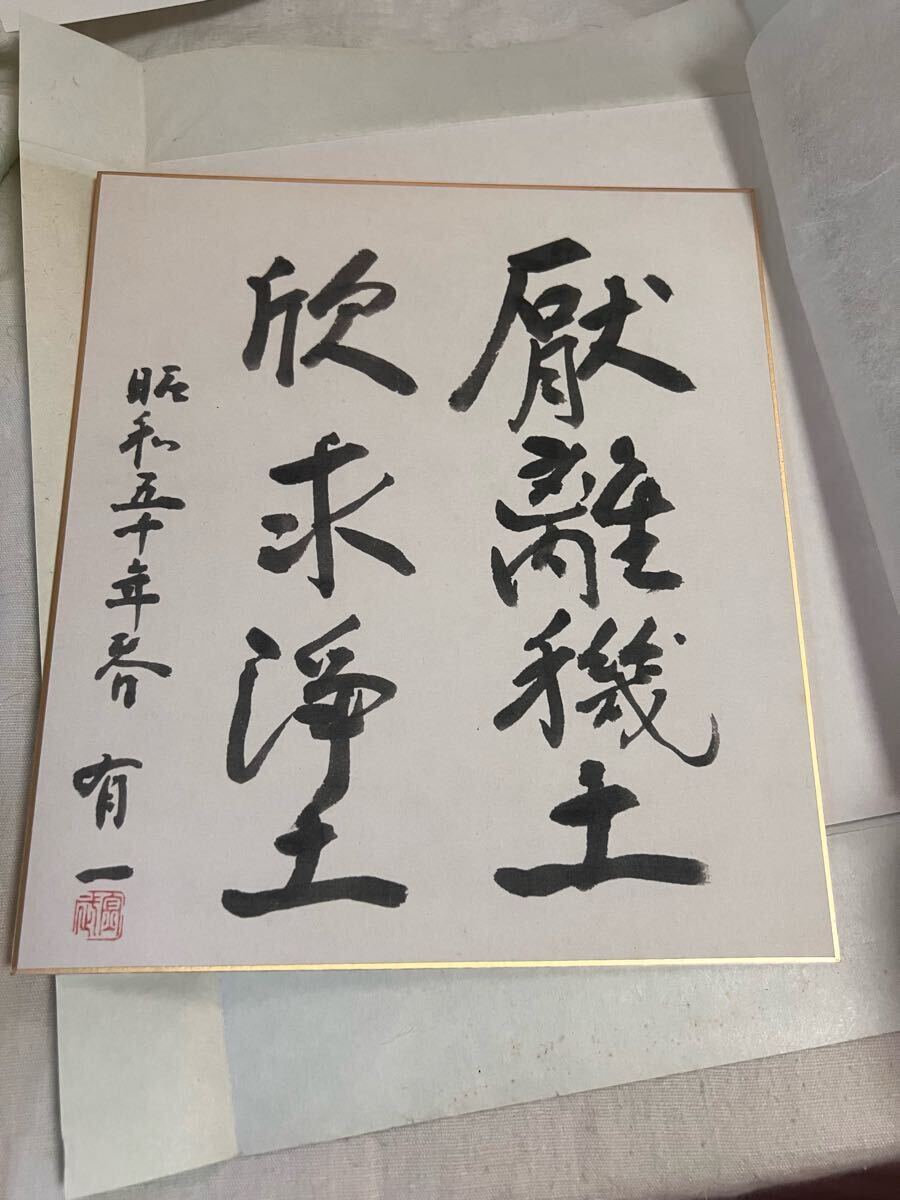 厭離穢土
欣求淨土
昭和五十年春 有一